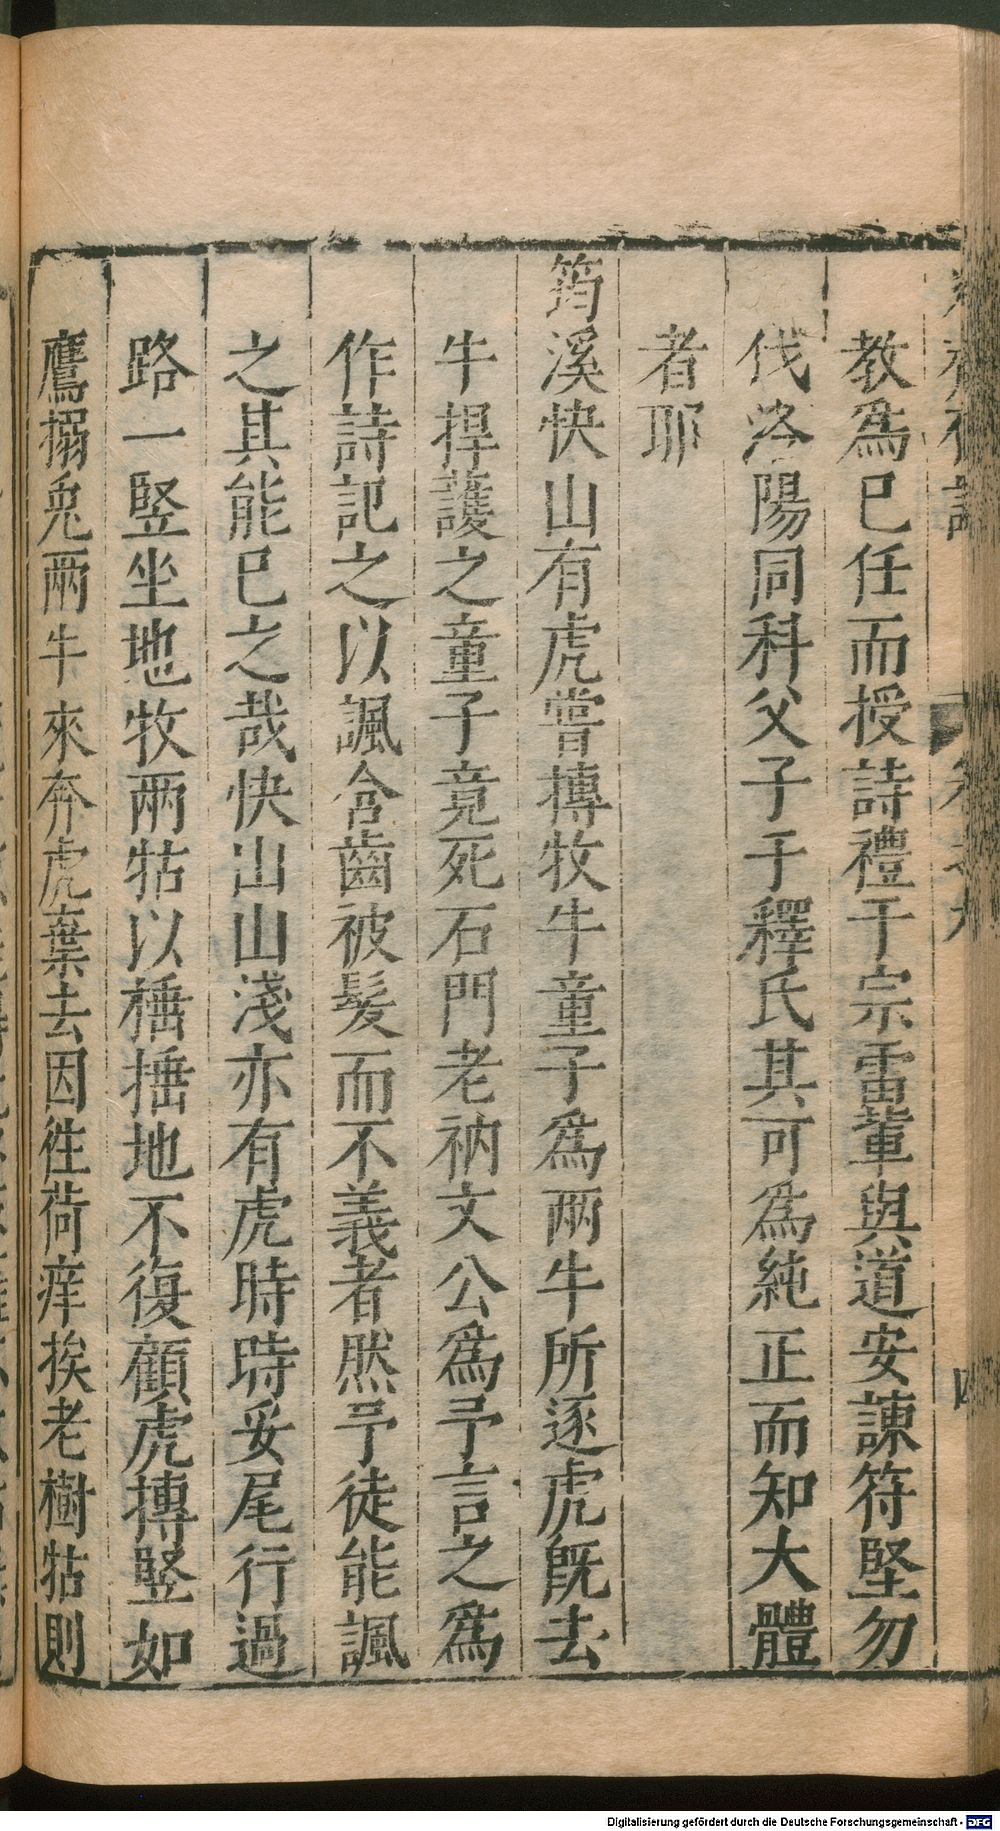 教爲已任而授詩禮于宗雷輩與道安諫符堅勿
伐洛陽同科父子于釋氏其可爲純正而知大體
者耶
筠溪快山有虎嘗搏牧牛童子爲兩牛所逐虎旣去
牛捍護之童子竟死石門老衲文公爲予言之爲
作詩記之以諷含齒被髮而不義者然予徒能諷
之其能已之哉快山山淺亦有虎時時妥尾行過
路一竪坐地牧兩牯以棰捶地不復顧虎搏竪如
鷹搦兎兩牛來奔虎棄去因徃荷痒挨老樹牯則
四
Digitalisierung gefördert durch die Deutsche Forschungsgemeinschaft - DFG